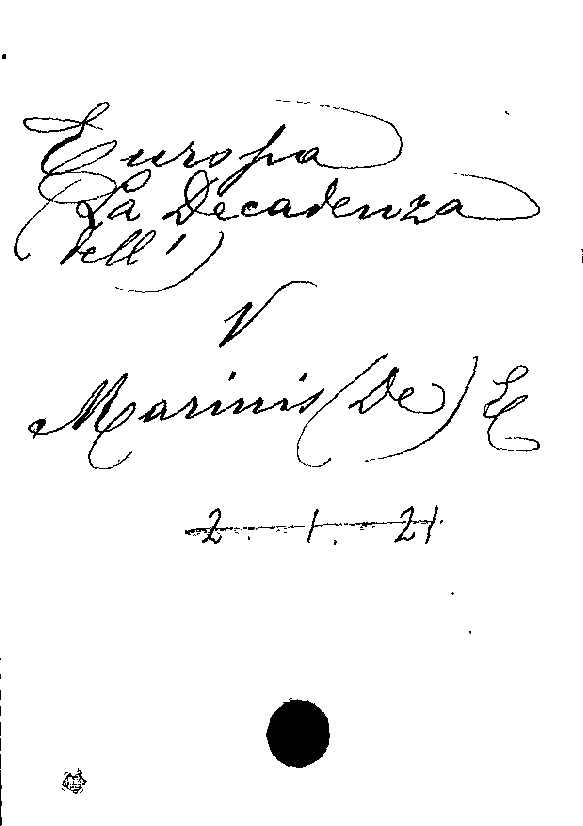 Europa
(La Decadenza
dell')
V
Marinis (De) E
2. 1. 21